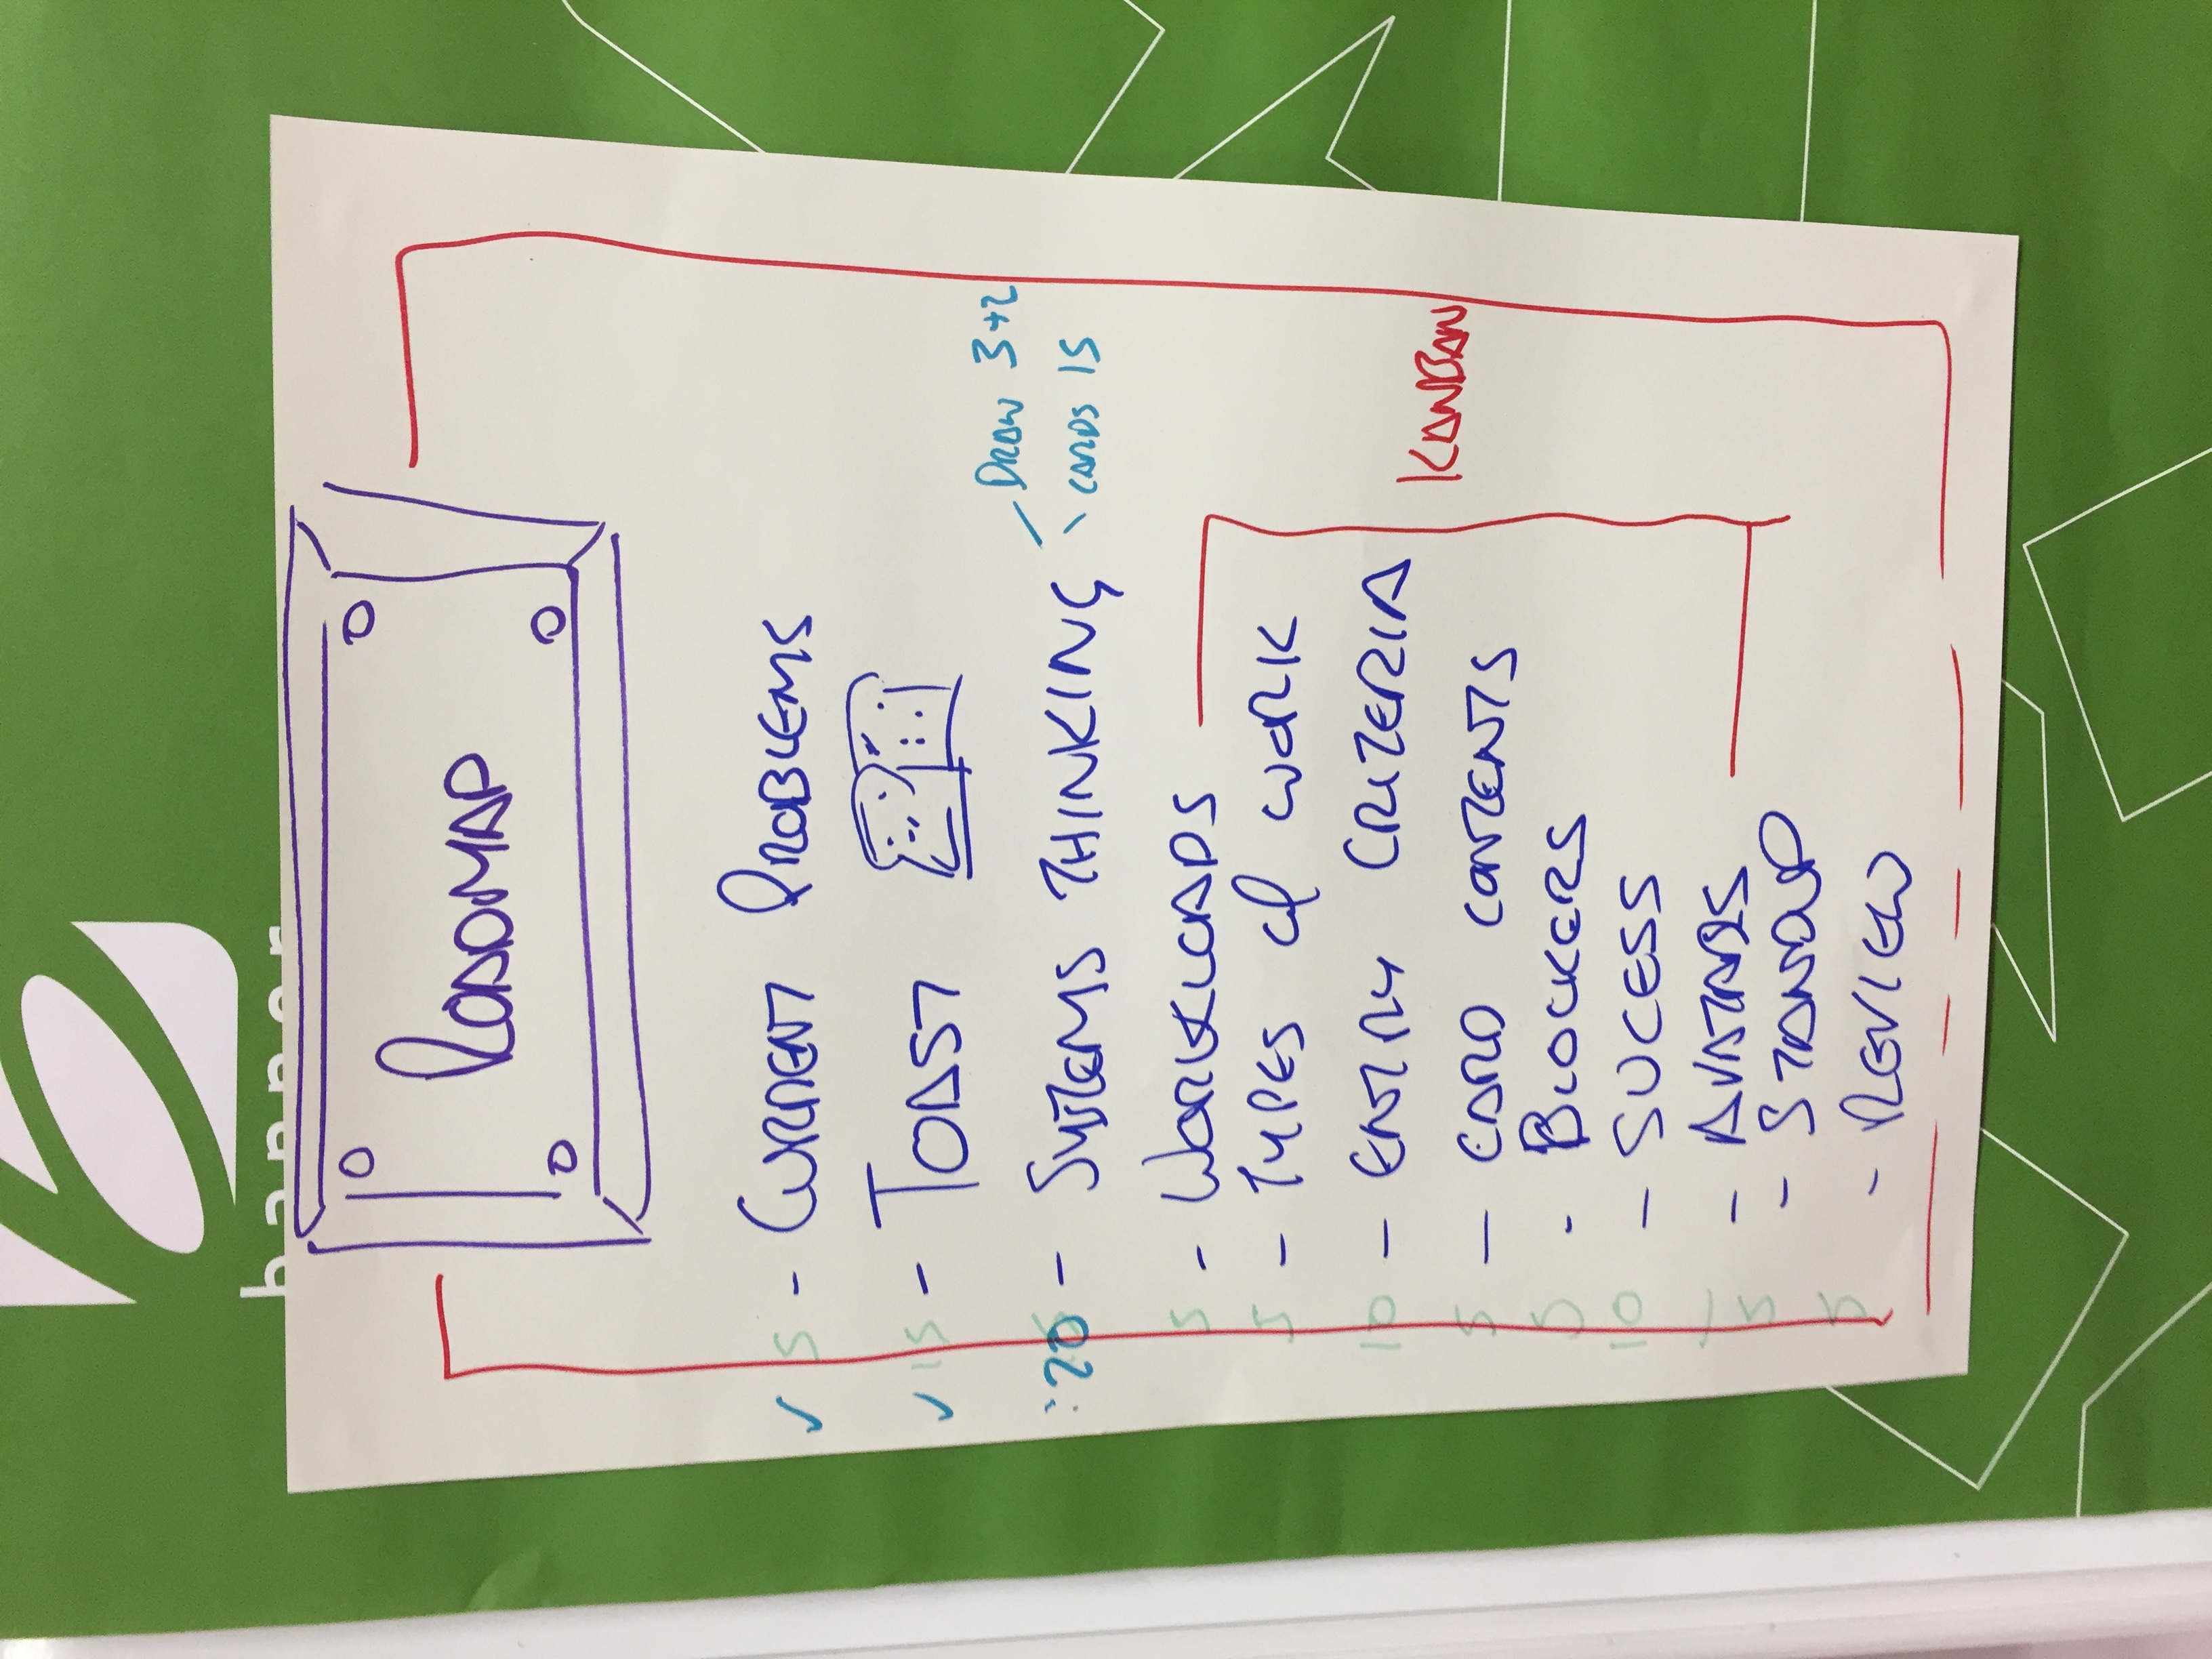 happer
ROADMAP
✓ 5 - CURRENT PROBLEMS
✓ 15 - TOAST
:20 - SYSTEMS THINKING
DRAW 3+2
CARDS 15
5 - WORKLOADS
5 - TYPES of WORK
10 - ENTRY CRITERIA
5 - CARD CONTENTS
5 - BLOCKERS
10 - SUCESS
/ - AVATARS
5 - STANDUP
5 - REVIEW
KANBAN